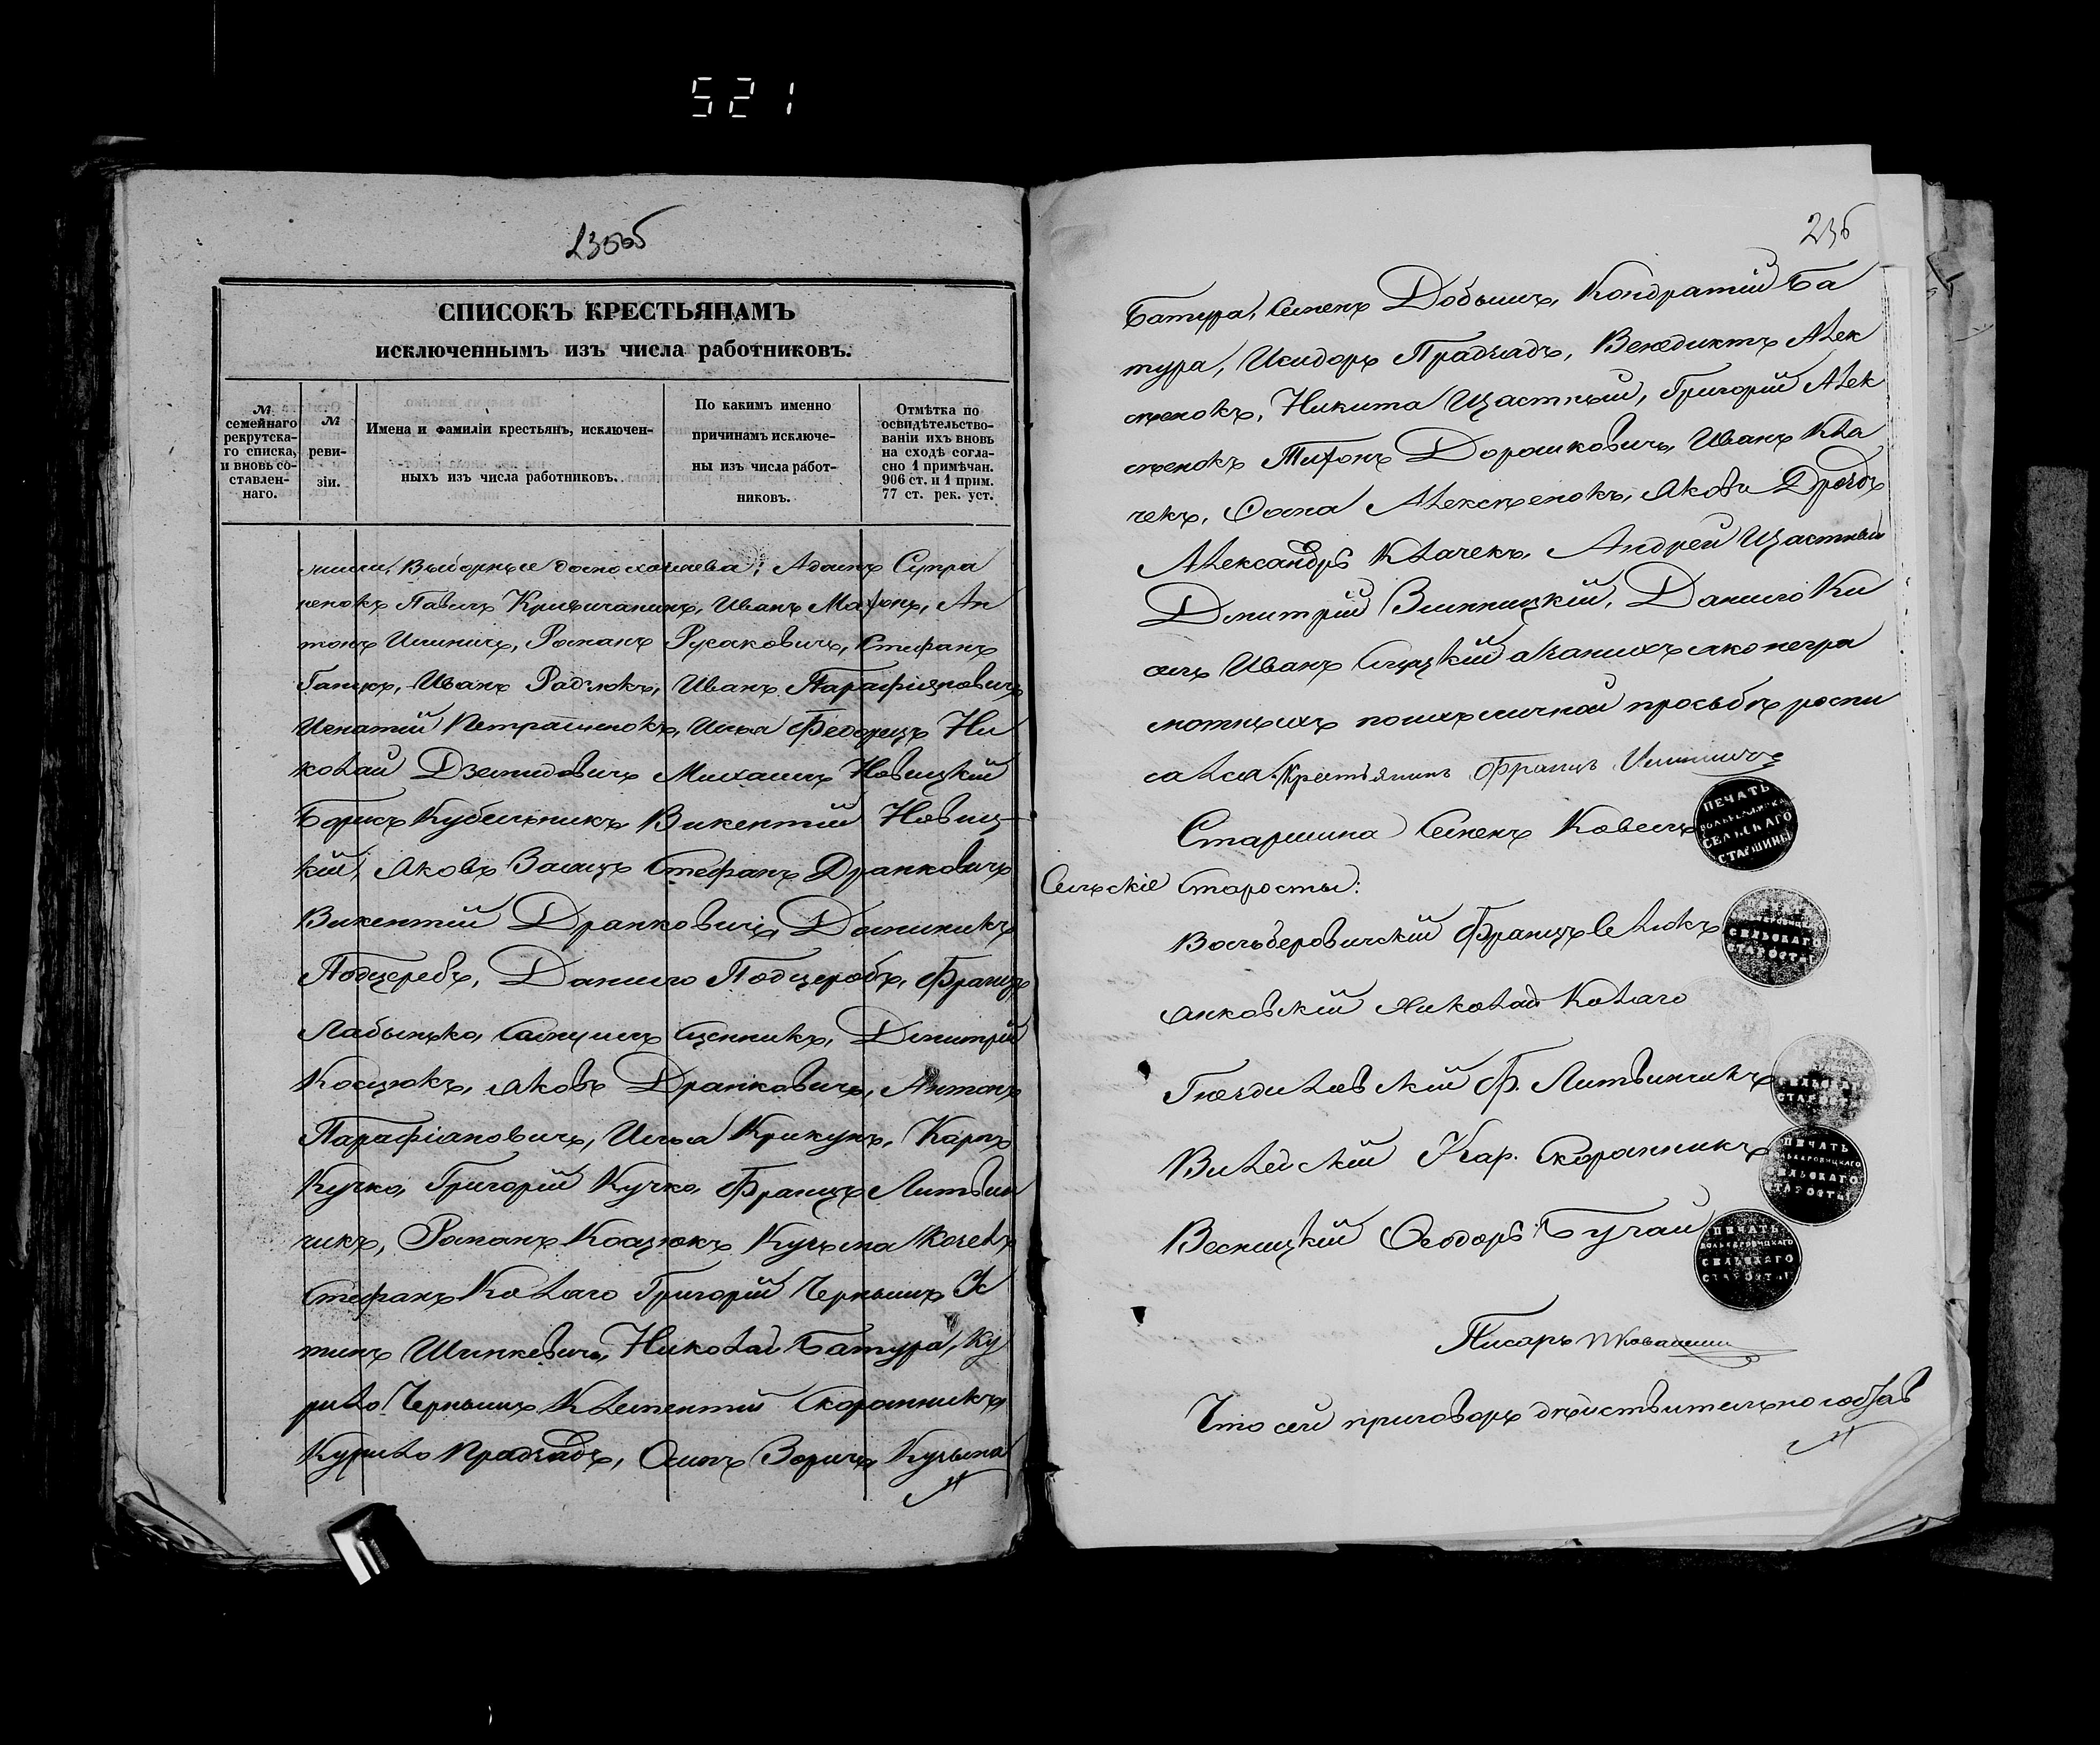 521
235об
СПИСОКЪ КРЕСТЬЯНАМЪ
исключеннымъ изъ числа работниковъ.
№ семейнаго рекрутска-го списка, и вновь со-ставлен-наго.
№ реви-зіи.
Имена и фамиліи крестьянъ, исключен-ныхъ изъ числа работниковъ.
По какимъ именно причинамъ исключе-ны изъ числа работ-никовъ.
Отмѣтка по освидѣтельство-ваніи ихъ вновь на сходѣ согла-сно 1 примѣчан. 906 ст. и 1 прим. 77 ст. рек. уст.
Выборные Адамъ Супра
ненокъ Павелъ Кривичанинъ, Иванъ Ан
тонъ Илиничъ, Романъ Русаковичъ, Стефанъ
Ганцъ, Иванъ Радзюкъ, Иванъ Парафіяновичъ
Игнатій Петрашенокъ, Илья Федорецъ Ни
колай Дземидовичъ Михаилъ Новицкій
Борисъ Кубельникъ Викентій Новиц
кій, Яковъ Заяцъ Стефанъ Дранковичъ
Викентій Дранковичъ, Доминикъ
Подцеребъ, Данило Подцеробъ, Францъ
Лабынько, Самуилъ Сценникъ, Дмитрій
Косцюкъ, Яковъ Дранковичъ, Антонъ
Парафіановичъ, Илья Крикунъ, Карпъ
Кучко, Григорій Кучко, Францъ Литвин
чикъ, Романъ Косцюкъ Кузьма Козелъ
Стефанъ Колаго Григорій Чернышъ Ю
тинъ Шинкевичъ, Николай Батура, Ку
рило Чернышъ Клементій Скоранникъ
Курило Прадзадъ, Осипъ Зоричъ, Кузьма
236
Батура, Семенъ Добышъ, Кондратій Ба
тура, Исидоръ Прадзядъ, Венедиктъ Алек
сѣенокъ, Никита Щастный, Григорій Алек
сѣенокъ Тифонъ Дорошковичъ, Иванъ Кла
чекъ, Фома Алексѣенокъ, Яковъ Дроздъ
Александръ Клачекъ, Андрей Щастный
Дмитрій Винницкій, Данило Ки
сель Иванъ Слуцкій а за нихъ яко негра
мотныхъ по ихъ личной просьбѣ роспи
сался Крестьянинъ Францъ Илиничъ
Старшина Семенъ Ковель
ПЕЧАТЬ
СЕЛЬСКАГО
СТАРШИНЫ
Сельскіе Старосты:
Вольберовичскій Францъ Селюкъ
СЕЛЬСКАГО
СТАРОСТЫ
Янковскій Николай Колаго
Гнездиловскій Ф. Литвинчикъ
СЕЛЬСКАГО
СТАРОСТЫ
Вилейскій Скоранникъ
ПЕЧАТЬ
СЕЛЬСКАГО
СТАРОСТЫ
Весницкій Феодоръ Бучай
ПЕЧАТЬ
СЕЛЬСКАГО
СТАРОСТЫ
Писарь
Что сей приговоръ дѣйствительно